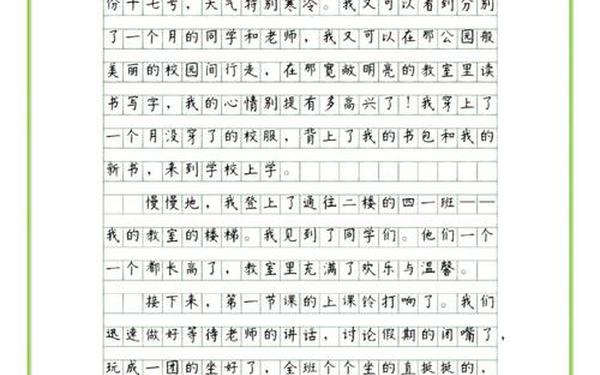 份十七号，天气特别寒冷。我又可以看到分别
了一个月的同学和老师，我又可以在那公园般
美丽的校园间行走，在那宽敞明亮的教室里读
书写字，我的心情别提有多高兴了！我穿上了
一个月没穿了的校服，背上了我的书包和我的
新书，来到学校上学。
慢慢地，我登上了通往二楼的四一班——
我的教室的楼梯。我见到了同学们。他们一个
一个都长高了，教室里充满了欢乐与温馨。
接下来，第一节课的上课铃打响了。我们
迅速做好等待老师的讲话，讨论假期的闭嘴了，
玩成一团的坐好了，全班个个坐的直挺挺的，